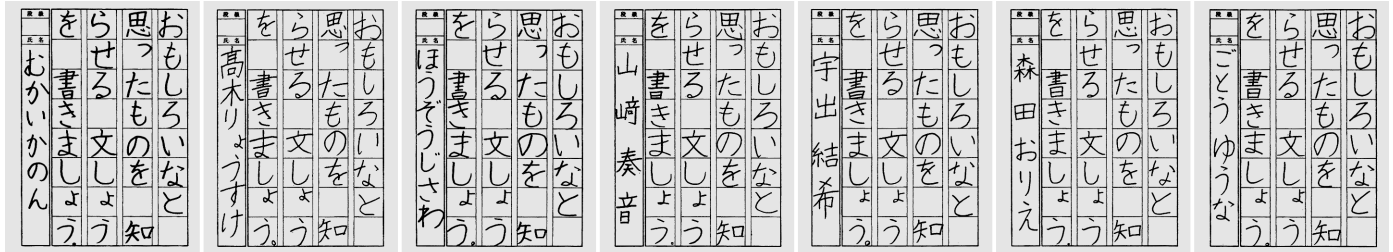 おもしろいなと
思ったものを 知
らせる 文しょう
を 書きましょう。
段級
氏名
むかいかのん
おもしろいなと
思ったものを 知
らせる 文しょう
を 書きましょう。
段級
氏名
髙木りょうすけ
おもしろいなと
思ったものを 知
らせる 文しょう
を 書きましょう。
段級
氏名
ほうぞうじさわ
おもしろいなと
思ったものを 知
らせる 文しょう
を 書きましょう。
段級
氏名
山﨑奏音
おもしろいなと
思ったものを 知
らせる 文しょう
を 書きましょう。
段級
氏名
宇出結希
おもしろいなと
思ったものを 知
らせる 文しょう
を 書きましょう。
段級
氏名
森田おりえ
おもしろいなと
思ったものを 知
らせる 文しょう
を 書きましょう。
段級
氏名
ごとう ゆうな